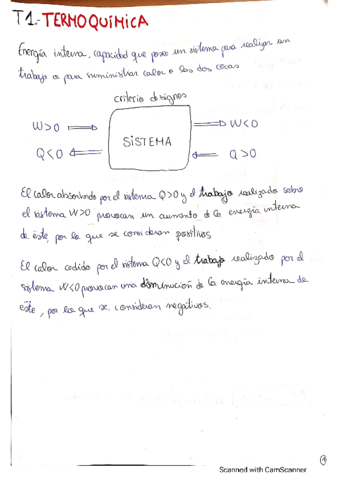 T1.- TERMOQUÍMICA
Energía interna, capacidad que posee un sistema para realizar un
trabajo o para suministrar calor o las dos cosas
criterio de signos
W>0 SISTEMA W<0
Q<0 Q>0
El calor absorbido por el sistema Q>0 y el trabajo realizado sobre
el sistema W>0 provocan un aumento de la energía interna
de éste, por lo que se consideran positivos
El calor cedido por el sistema Q<0 y el trabajo realizado por el
sistema W<0 provocan una disminución de la energía interna de
éste, por lo que se consideran negativos.
Scanned with CamScanner